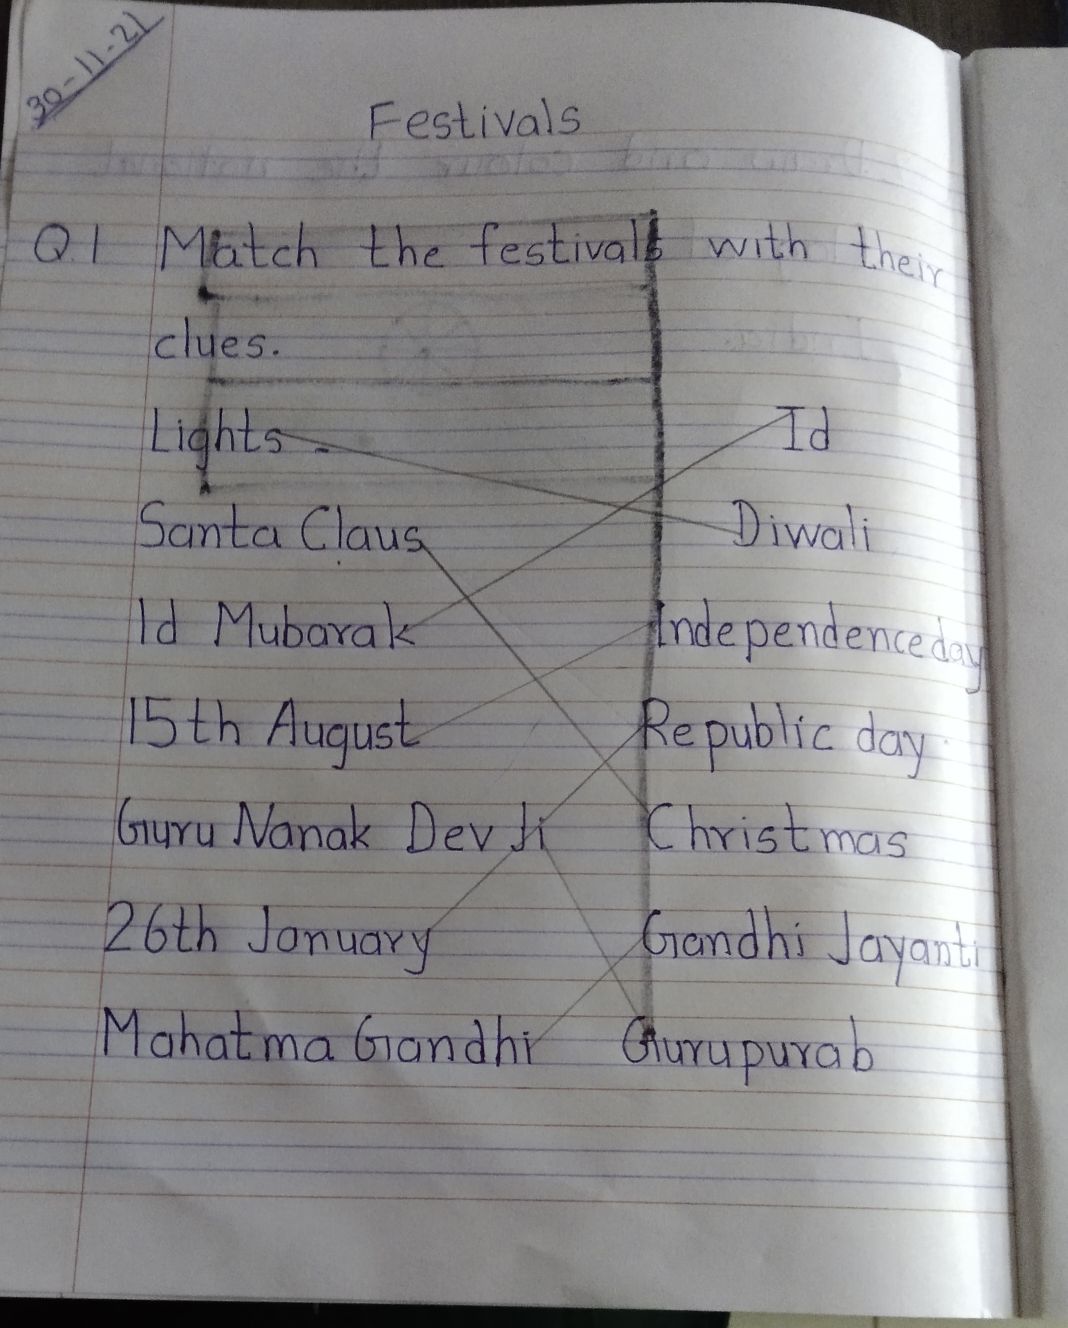 30-11-21
Festivals
Q1 Match the festivals with their
clues.
Lights - Id
Santa Claus Diwali
Id Mubarak Independence day
15th August Republic day.
Guru Nanak Dev Ji Christmas
26th January Gandhi Jayanti
Mahatma Gandhi Gurupurab